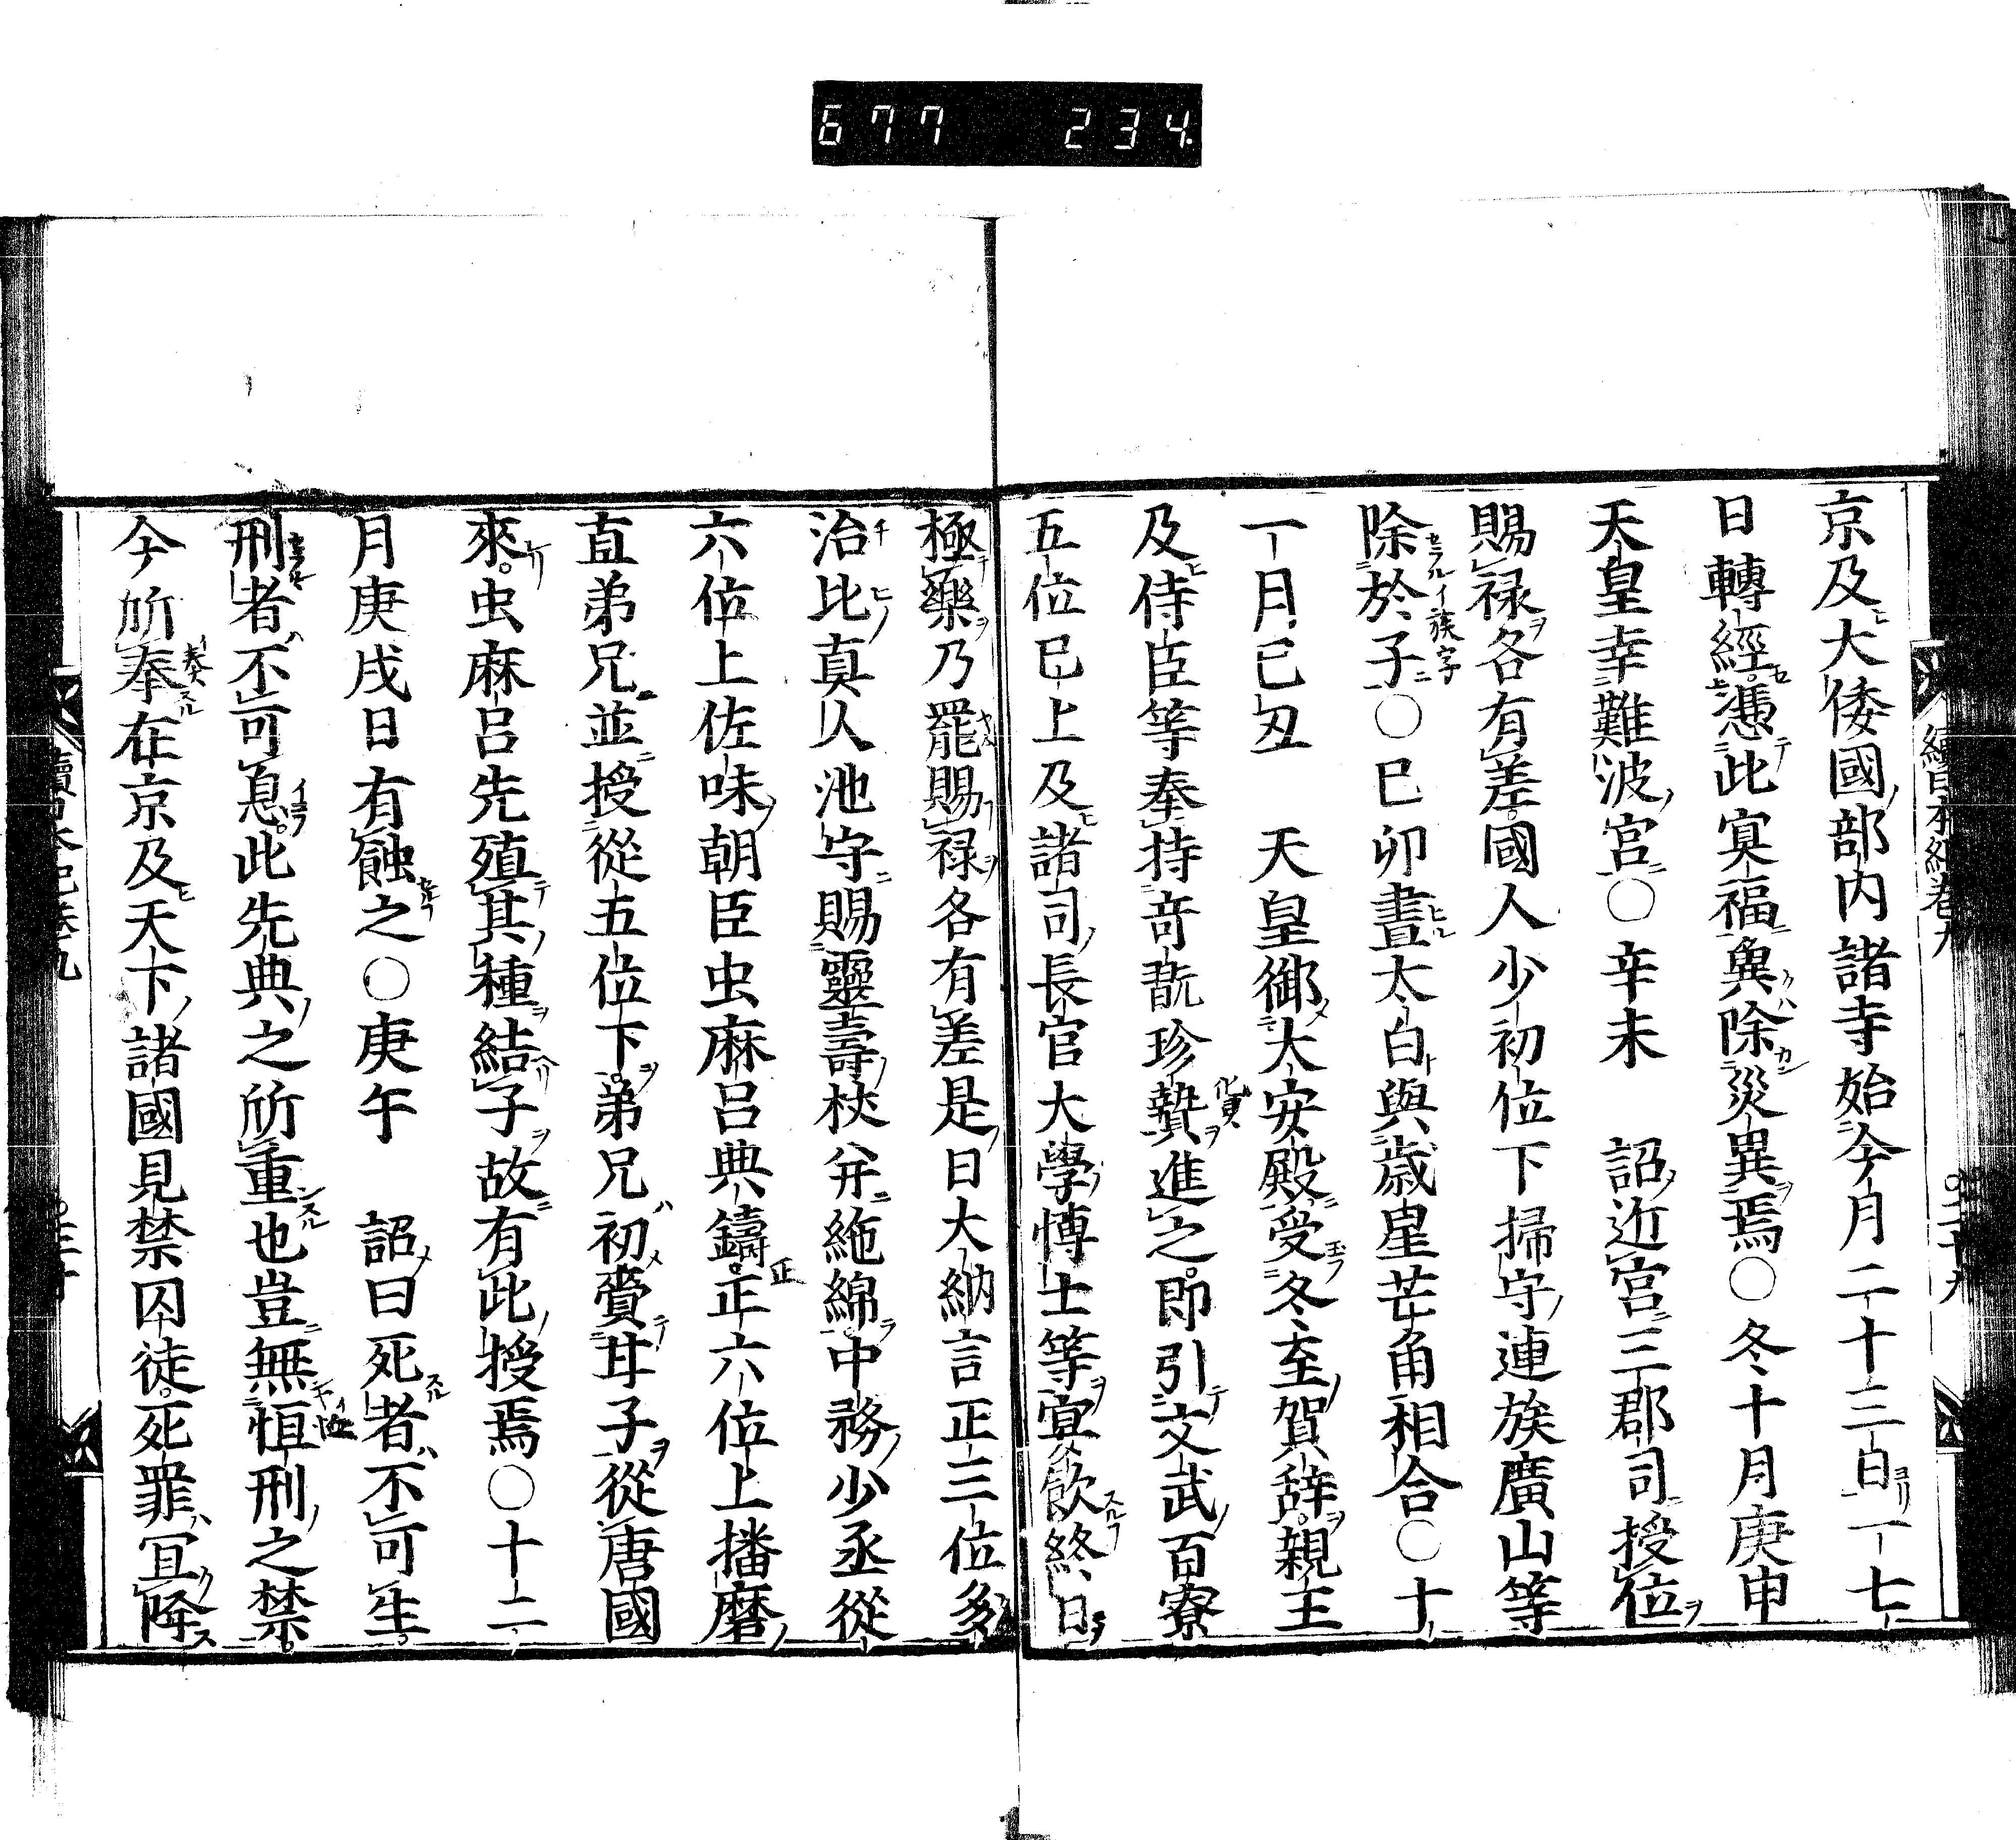 677 234
續日本紀卷九
二十九
京及大倭國部内諸寺始今月二十三日一七
日轉經憑此冥福兾除災異焉○冬十月庚申
天皇幸難波宮○辛未 詔近宮三郡司授位
賜禄各有差國人少初位下掃守連族廣山等
除於子○巳卯晝太白與歳星芒角相合○十
一月己丑 天皇御大安殿受冬至賀辞親王
及侍臣等奉持竒翫珍贄進之即引文武百寮
五位已上及諸司長官大學博士等宴飲終日
極樂乃罷賜禄各有差是日大納言正三位多
治比真人池守賜靈壽杖并絁綿中務少丞從
六位上佐味朝臣虫麻呂典鑄正六位上播磨
直弟兄並授從五位下弟兄初賷甘子從唐國
來虫麻呂先殖其種結子故有此授焉○十二
月庚戌日有蝕之○庚午 詔曰死者不可生
刑者不可息此先典之所重也豈無恒刑之禁
今所奉在京及天下諸國見禁囚徒死罪宜降
續日本紀卷九